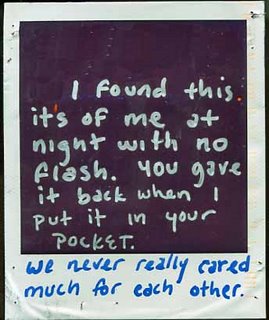 I found this.
it's of me at
night with no
flash. you gave
it back when I
put it in your
POCKET.
we never really cared
much for each other.